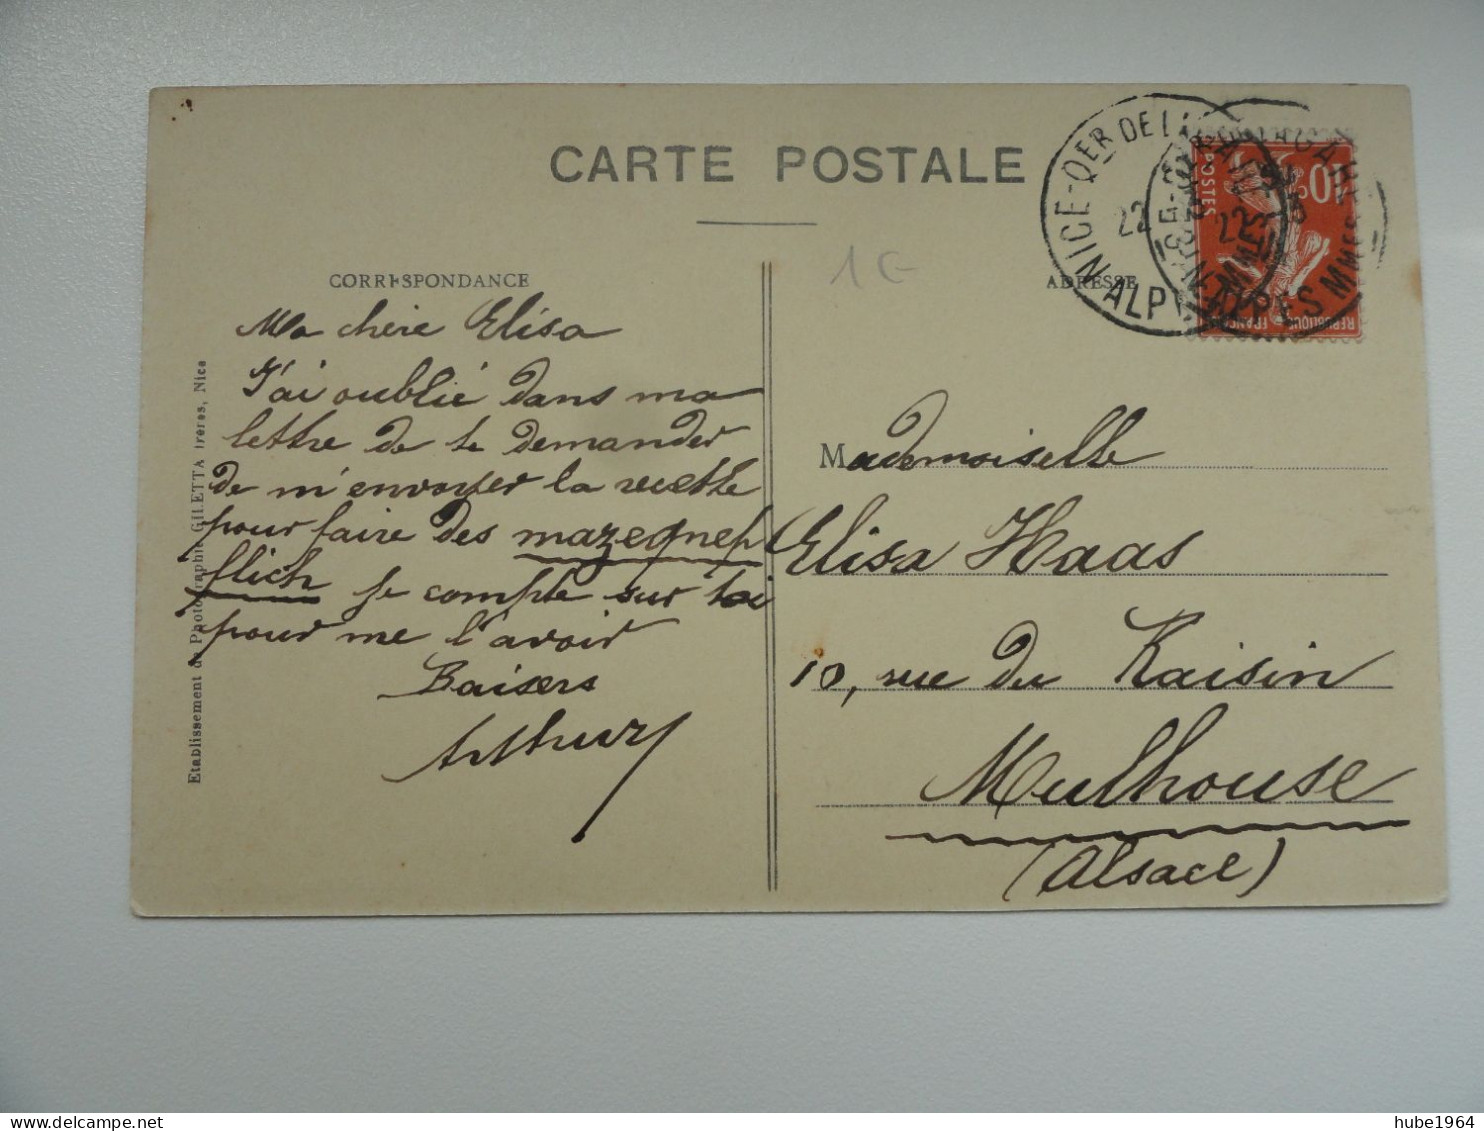 CARTE POSTALE
CORRESPONDANCE
Ma chère Elisa
J'ai oublié dans ma
lettre de te demander
de m'envoyer la recette
pour faire des mazegnep
flich je compte sur toi
pour me l'avoir
Baisers
Arthur
Etablissement de Photographie GILETTA frères, Nice
1€
ADRESSE
NICE-QER DE
22
22
ALPES MMES
POSTES
10c
REPUBLIQUE FRANC
Mademoiselle
Elisa Haas
10, rue du Raisin
Mulhouse
(Alsace)
hube1964